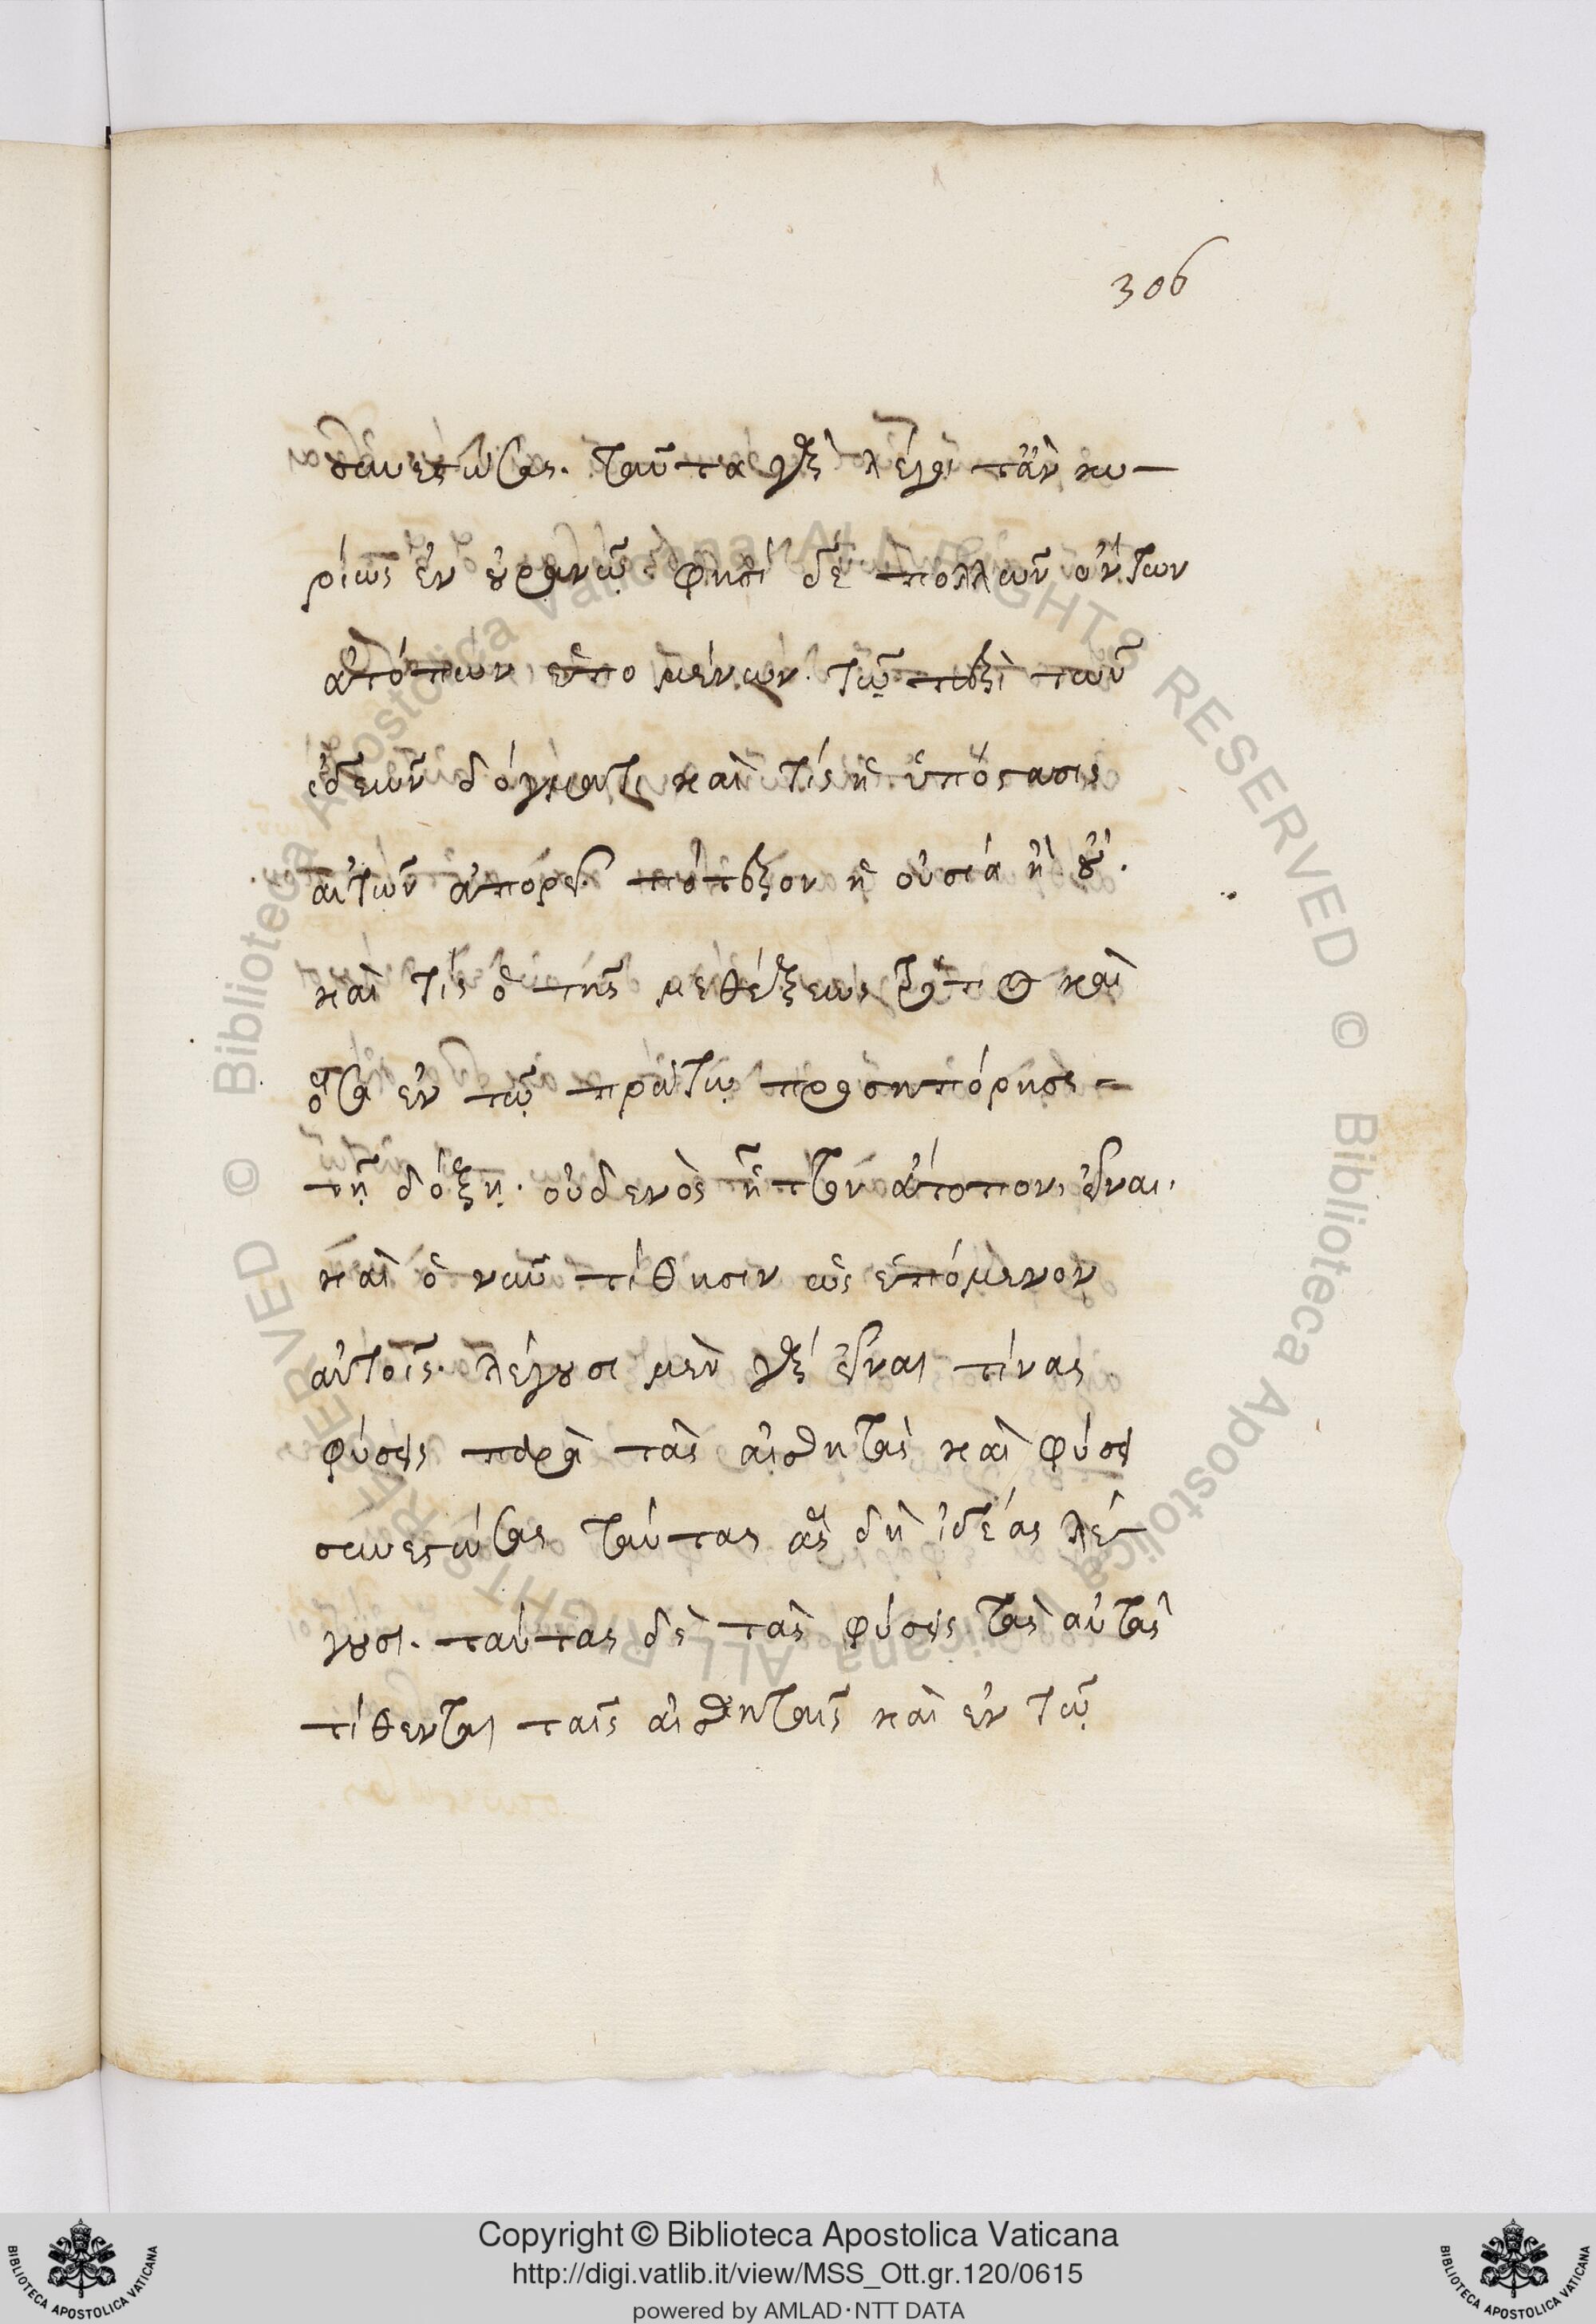 306
συνεστώσας. ταῦτα γὰρ λέγει τὰν κυ-
ρίως ἐν οὐρανῷ. φησὶ δὲ πολλῶν ὄντων
ἀτόπων ἑπομένων τῷ περὶ τῶν
ἰδεῶν δόγματι καὶ τίς ἡ ὑπόστασις
αὐτῶν ἀπορεῖ πότερον ἡ οὐσία ἢ οὔ.
καὶ τίς ὁ τῆς μεθέξεως καὶ
ὅσα ἐν τῷ πρώτῳ προσηπόρησε
τῇ δόξῃ. οὐδενὸς ἧττον ἄτοπον εἶναι
καὶ ὃ νῦν τίθησιν ὡς ἑπόμενον
αὐτοῖς. λέγουσι μὲν γὰρ εἶναι τίνας
φύσεις παρὰ τὰς αἰσθητὰς καὶ φύσει
συνεστώσας ταύτας ἃς δὴ ἰδέας λέ-
γουσι. ταύτας δὲ τὰς φύσεις τὰς αὐτὰς
τίθενται ταῖς αἰσθηταῖς καὶ ἐν τῷ
Copyright © Biblioteca Apostolica Vaticana
http://digi.vatlib.it/view/MSS_Ott.gr.120/0615
powered by AMLAD·NTT DATA
BIBLIOTECA APOSTOLICA VATICANA
BIBLIOTECA APOSTOLICA VATICANA
© Biblioteca Apostolica Vaticana ALL RIGHTS RESERVED
© Biblioteca Apostolica Vaticana ALL RIGHTS RESERVED